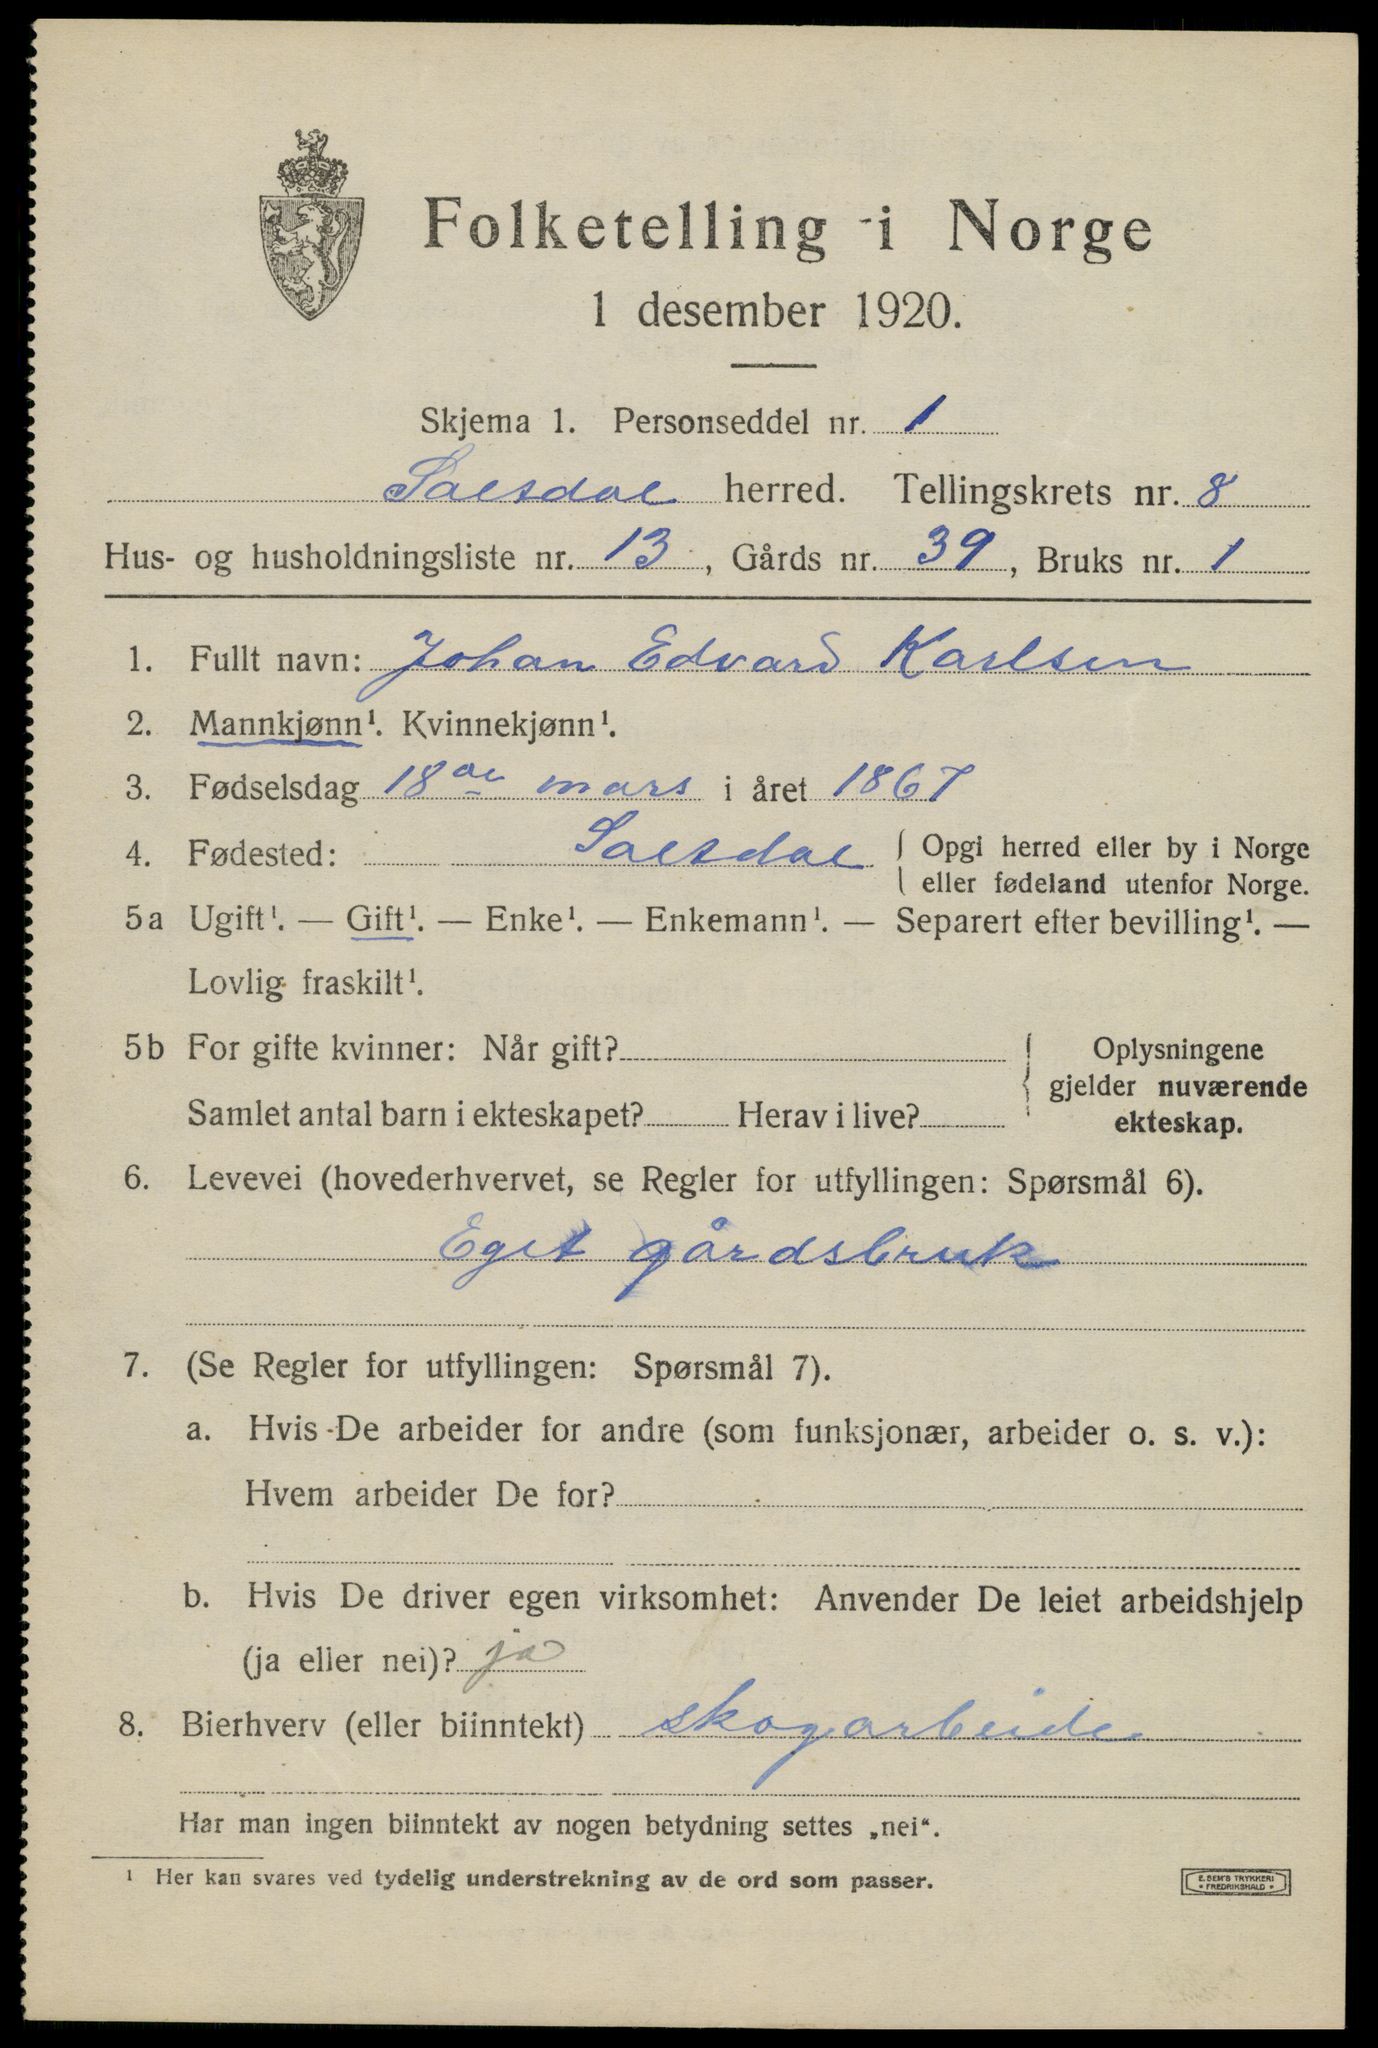 Folketelling i Norge
1 desember 1920.
Skjema 1. Personseddel nr. 1
Saltdal herred. Tellingskrets nr. 8
Hus- og husholdningsliste nr. 13, Gårds nr. 39, Bruks nr. 1
1. Fullt navn: Johan Edvard Karlsen
2. Mannkjønn¹. Kvinnekjønn¹.
3. Fødselsdag 18de mars i året 1867
4. Fødested: Saltdal { Opgi herred eller by i Norge
eller fødeland utenfor Norge.
5a Ugift¹. — Gift¹. — Enke¹. — Enkemann¹. — Separert efter bevilling¹. —
Lovlig fraskilt¹.
5b For gifte kvinner: Når gift? { Oplysningene
gjelder nuværende
Samlet antal barn i ekteskapet? Herav i live? ekteskap.
6. Levevei (hovederhvervet, se Regler for utfyllingen: Spørsmål 6).
Eget gårdsbruk
7. (Se Regler for utfyllingen: Spørsmål 7).
a. Hvis De arbeider for andre (som funksjonær, arbeider o. s. v.):
Hvem arbeider De for?
b. Hvis De driver egen virksomhet: Anvender De leiet arbeidshjelp
(ja eller nei)? ja
8. Bierhverv (eller biinntekt) skogarbeide
Har man ingen biinntekt av nogen betydning settes „nei“.
¹ Her kan svares ved tydelig understrekning av de ord som passer.
E. SEM'S TRYKKERI
• FREDRIKSHALD •